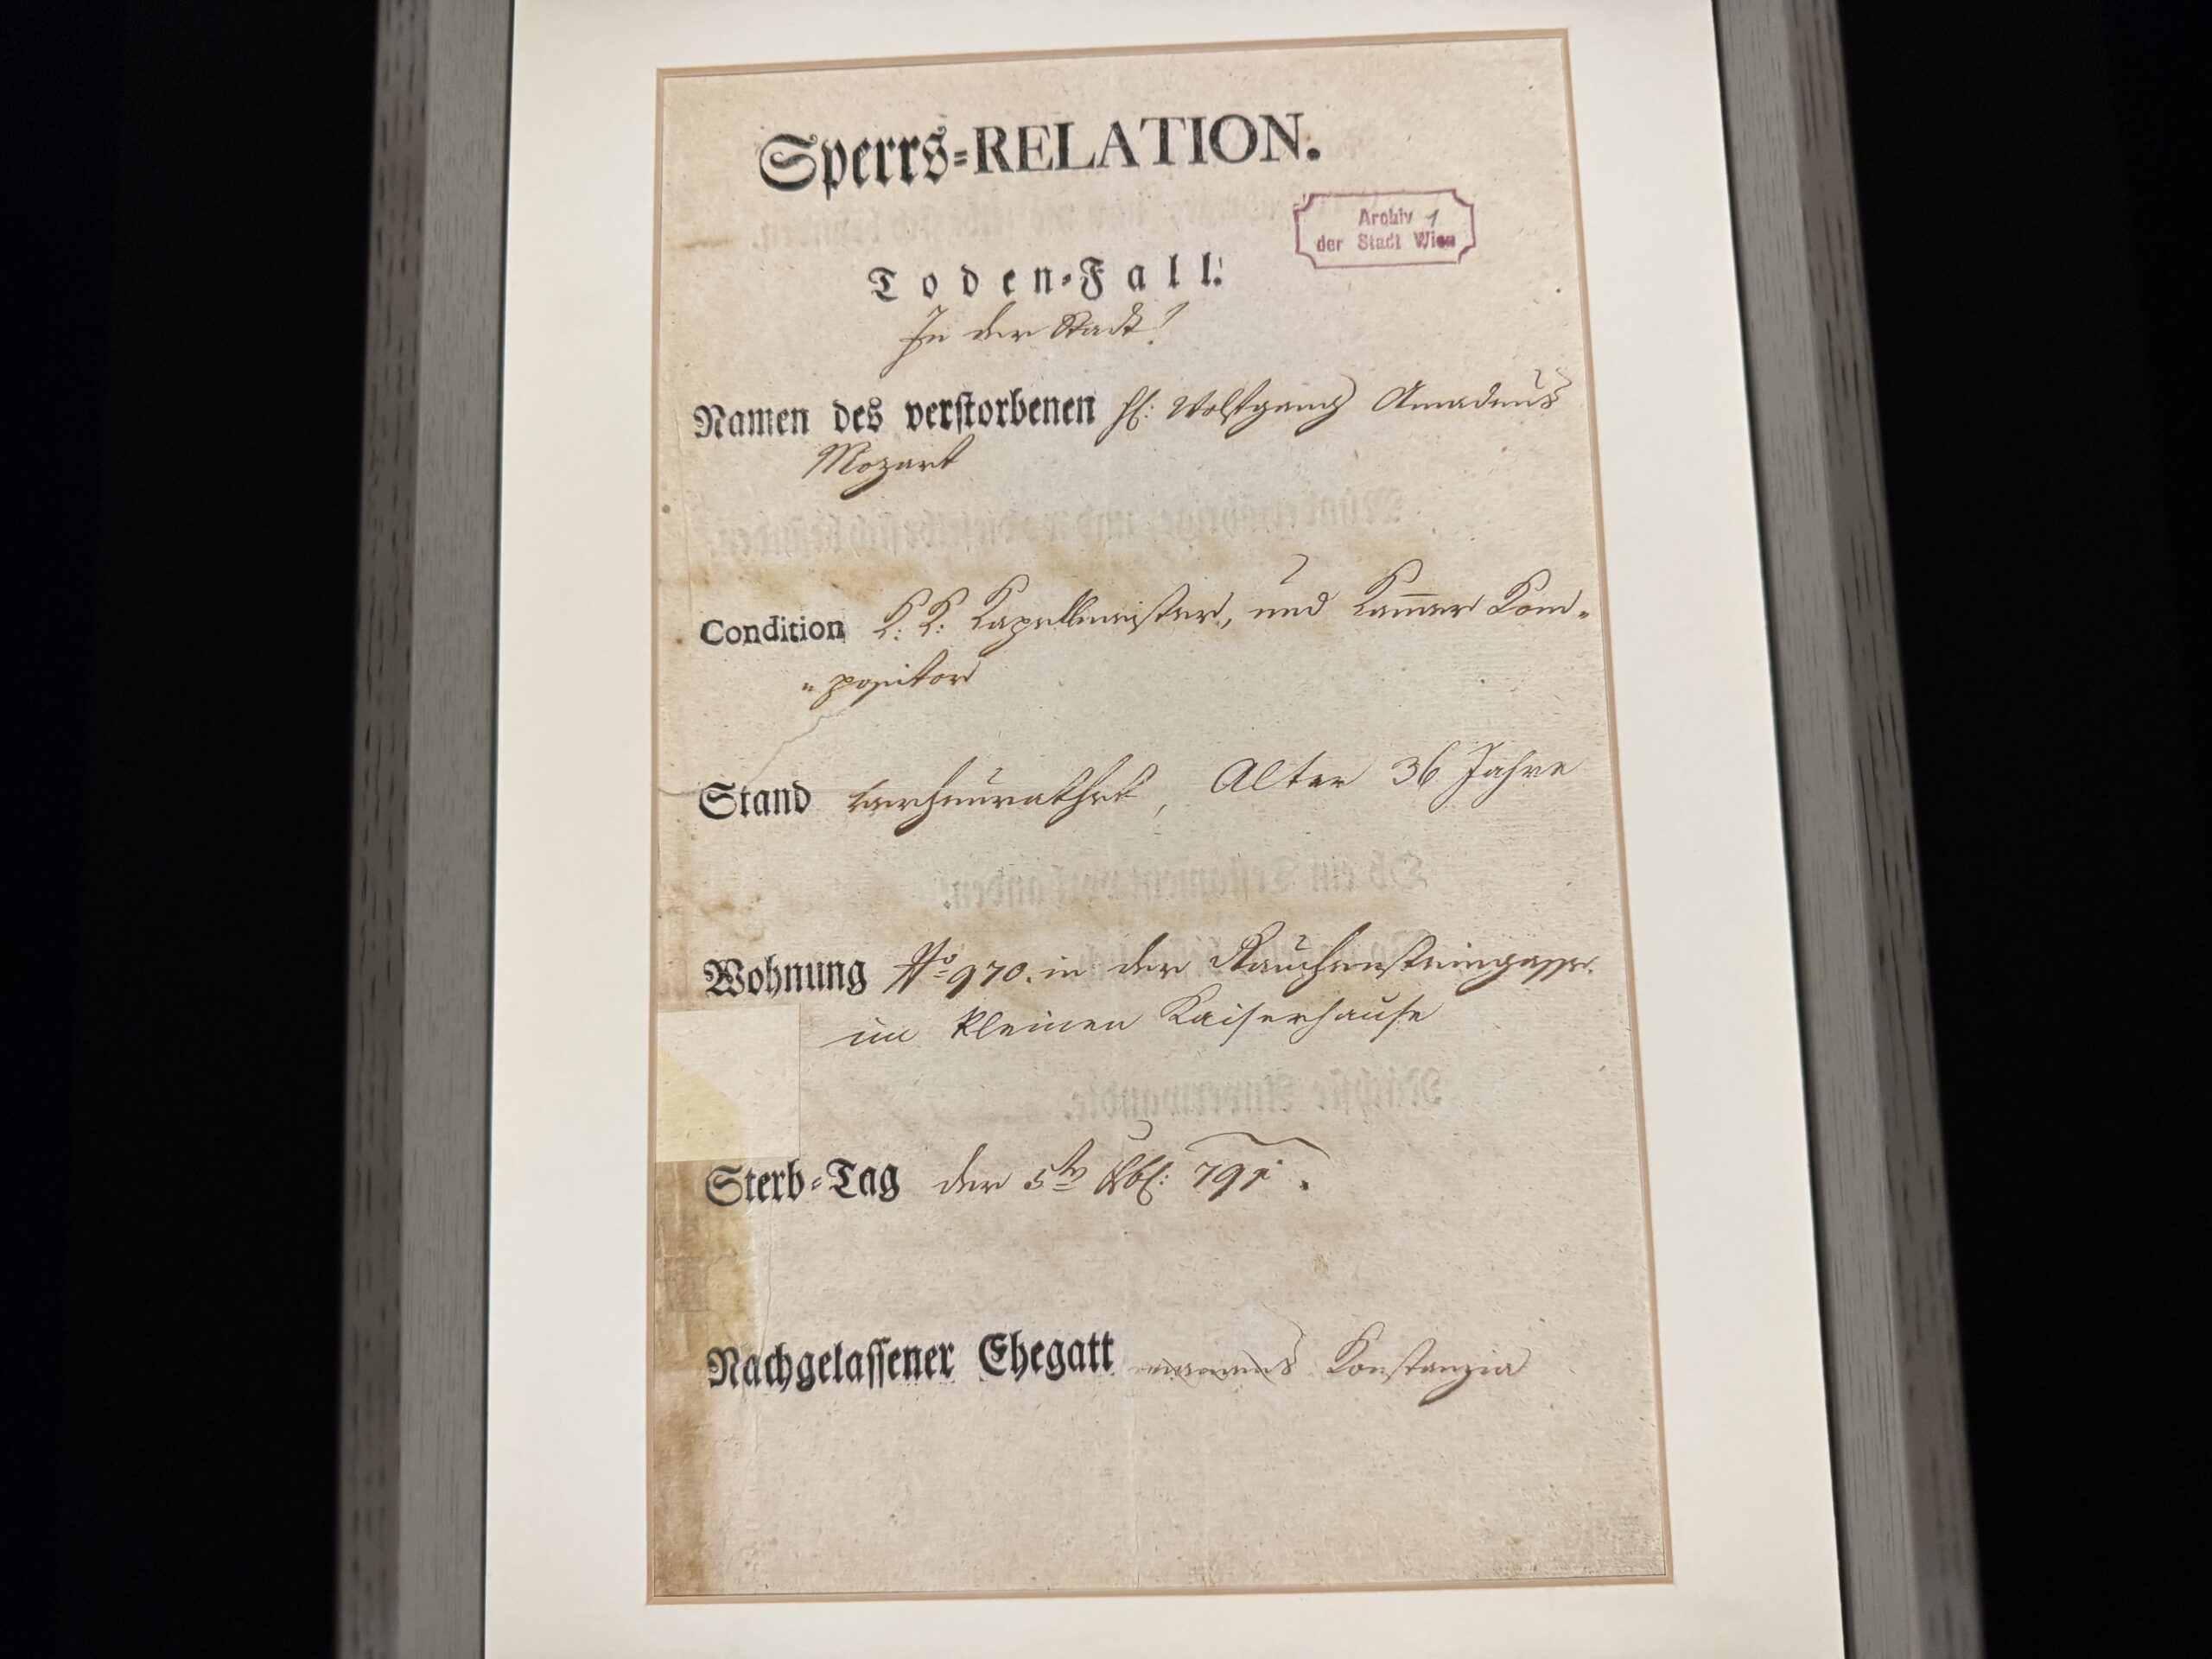 Sperrs=RELATION.
Archiv 1
der Stadt Wien
Toden=Fall.
In der Stadt
Namen des verstorbenen H: Wolfgang Amadeus
Mozart
Condition K: K: Kapellmeister, und Kammer Kom=
=positor
Stand verheurathet, Alter 36 Jahre
Wohnung No 970. in der Rauhensteingasse.
im kleinen Kaiserhause
Sterb=Tag der 5te Xbr: 791.
Nachgelassener Ehegatt Konstanzia